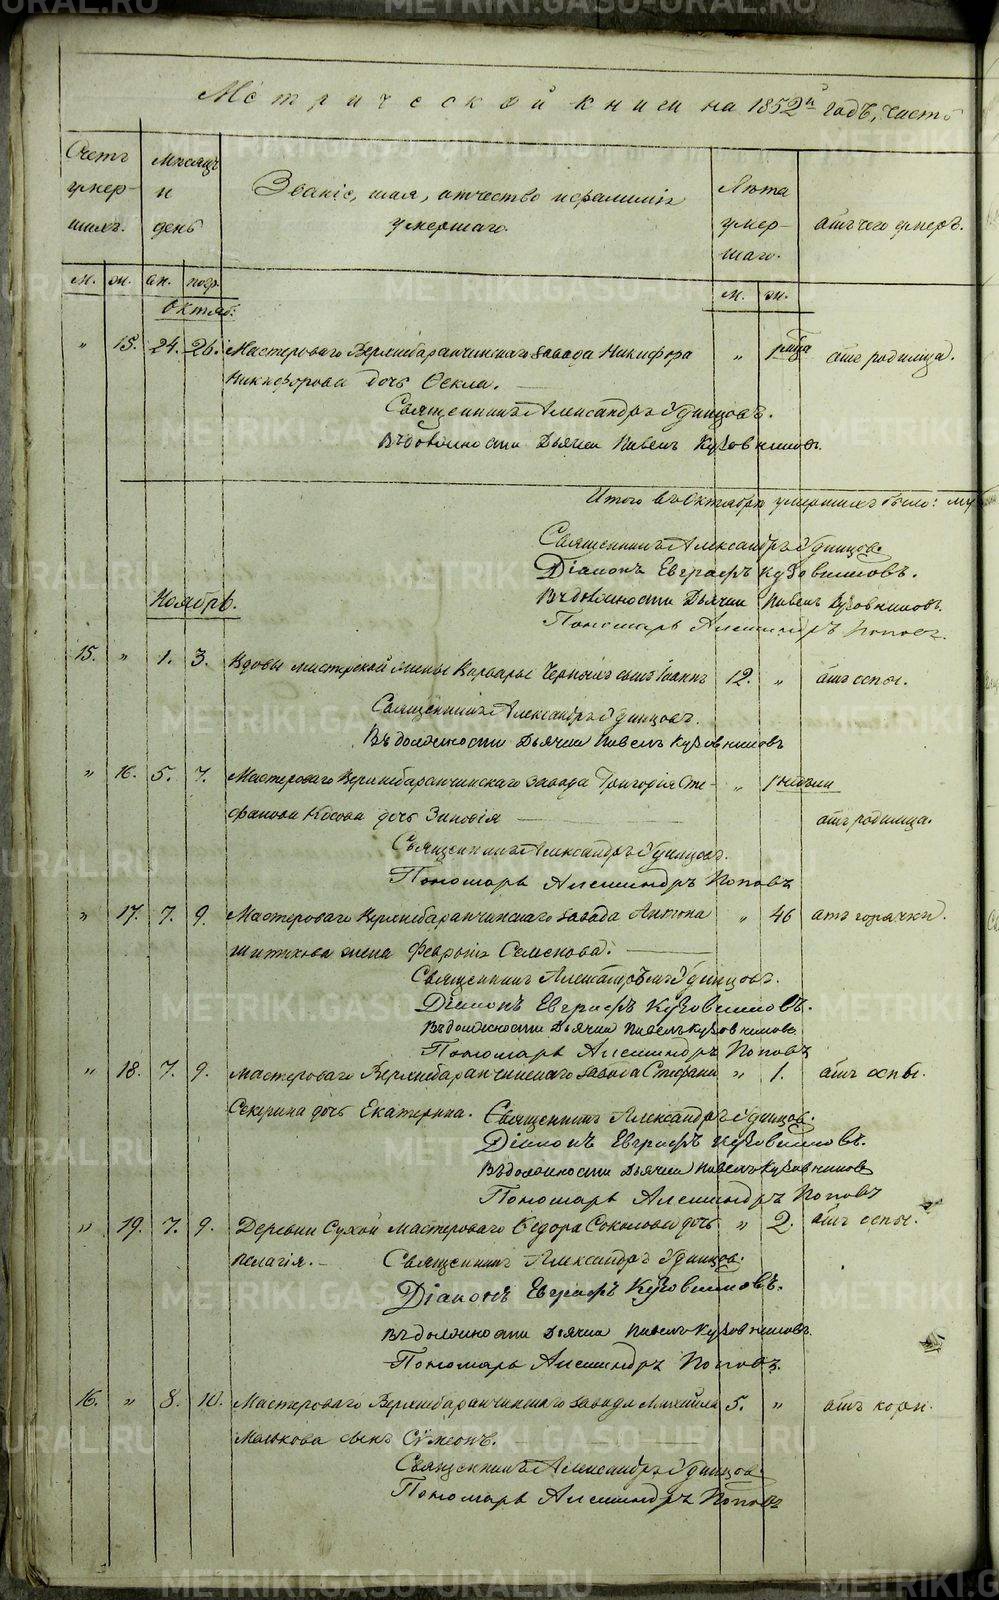 Метрической книги на 1852й годъ, часть
Счетъ умер-шихъ.
Мѣсяцъ и день
Званіе, имя, отчество и фамилія умершаго.
Лѣта умер-шаго.
отъ чего умеръ.
м. ж. см. погр. м. ж.
Октяб:
" 15. 24. 26. Мастероваго Верхнебаранчинскаго завода Никифора " отъ родимца.
Никифорова дочь Фекла.
Священникъ Александръ Удинцовъ.
Въ должности Дьячка Павелъ Кузовниковъ.
Итого въ Октябрѣ умершихъ было: му
Священникъ Александръ Удинцовъ
Діаконъ Евграфъ Кузовниковъ.
Въ должности Дьячка Павелъ Кузовниковъ.
Пономарь Александръ Поповъ.
Ноябрь.
15. " 1. 3. Вдовы мастерской жены Варвары сынъ Іоаннъ 12. " отъ оспы.
Священникъ Александръ Удинцовъ.
Въ должности Дьячка Павелъ Кузовниковъ
" 16. 5. 7. Мастероваго Верхнебаранчинскаго завода Григорія Сте- " 1 недѣли
фанова Косова дочь Зиновія отъ родимца.
Священникъ Александръ Удинцовъ.
Пономарь Александръ Поповъ
" 17. 7. 9. Мастероваго Верхнебаранчинскаго завода Антона " 46 отъ горячки.
жена Февронія Семенова.
Священникъ Александръ Удинцовъ.
Діаконъ Евграфъ Кузовниковъ.
Въ должности Дьячка Павелъ Кузовниковъ
Пономарь Александръ Поповъ
" 18. 7. 9. Мастероваго Верхнебаранчинскаго завода Стефана " 1. отъ оспы.
Секерина дочь Екатерина. Священникъ Александръ Удинцовъ.
Діаконъ Евграфъ Кузовниковъ.
Въ должности Дьячка Павелъ Кузовниковъ
Пономарь Александръ Поповъ
" 19. 7. 9. Деревни Сухой мастероваго Федора Соколова дочь " 2. отъ оспы.
Пелагія. Священникъ Александръ Удинцовъ.
Діаконъ Евграфъ Кузовниковъ.
Въ должности Дьячка Павелъ Кузовниковъ.
Пономарь Александръ Поповъ.
16. " 8. 10. Мастероваго Верхнебаранчинскаго завода Михаила 5. " отъ кори.
Малькова сынъ Сѵмеонъ.
Священникъ Александръ Удинцовъ
Пономарь Александръ Поповъ
METRIKI.GASO-URAL.RU